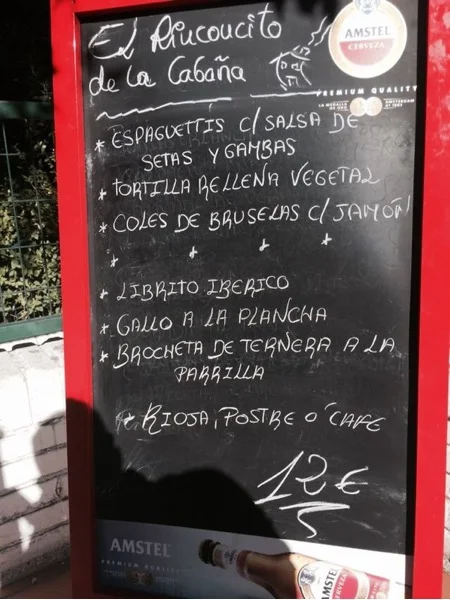 El Rincoucito
de la Cabaña
AMSTEL
CERVEZA
PREMIUM QUALITY
* ESPAGUETTIS C/ SALSA DE
SETAS Y GAMBAS
* TORTILLA RELLENA VEGETAL
* COLES DE BRUSELAS C/ JAMÓN
* LIBRITO IBERICO
* GALLO A LA PLANCHA
* BROCHETA DE TERNERA A LA
PARRILLA
* RIOJA, POSTRE O' CAFE
12 €
AMSTEL
PREMIUM QUALITY
AMSTEL
CERVEZA